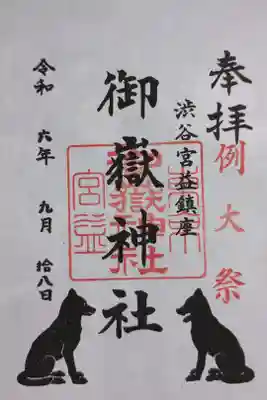 奉拝
例大祭
渋谷宮益鎮座
御嶽神社
令和六年九月拾八日